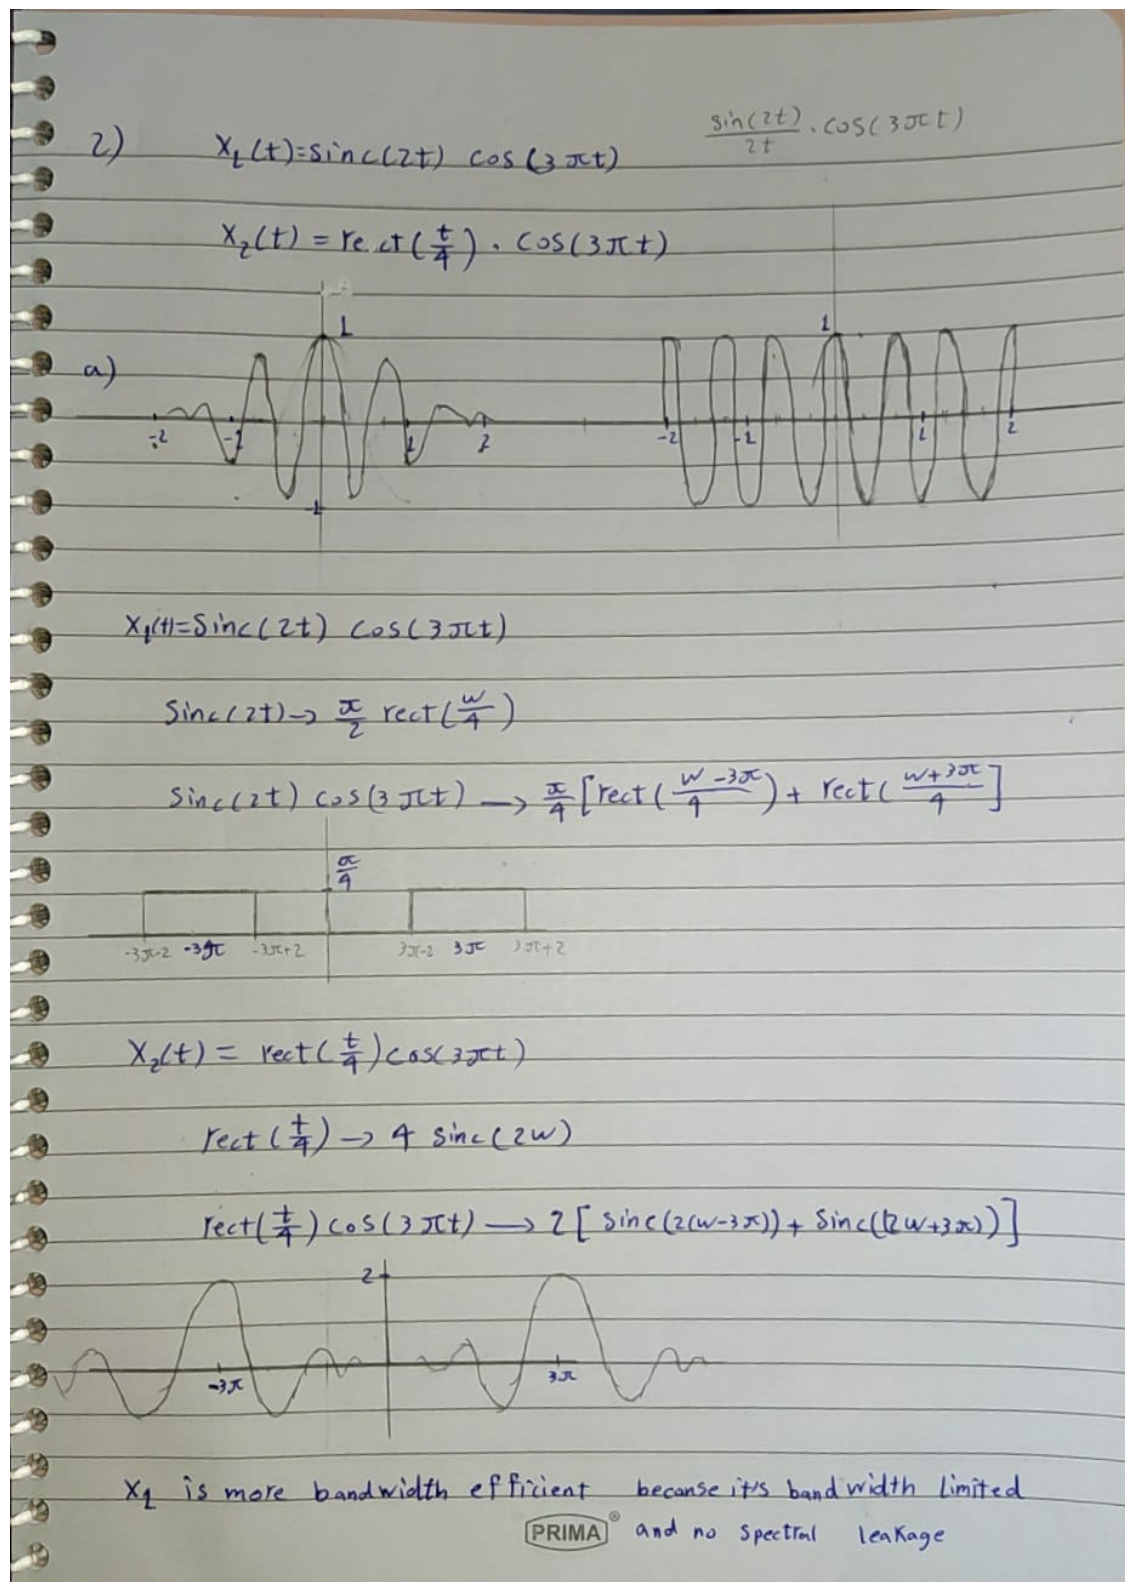 2) X₁(t)=sinc(2t) cos(3πt) sin(2t)/2t . cos(3πt)
X₂(t) = rect(t/4) . cos(3πt)
a) 1 1
-2 -1 1 2 -2 -1 1 2
-1
X₁(t)=sinc(2t) cos(3πt)
sinc(2t)→ π/2 rect(w/4)
sinc(2t) cos(3πt) → π/4 [rect((w-3π)/4) + rect((w+3π)/4)]
π/4
-3π-2 -3π -3π+2 3π-2 3π 3π+2
X₂(t) = rect(t/4)cos(3πt)
rect(t/4) → 4 sinc(2w)
rect(t/4) cos(3πt) → 2 [ sinc(2(w-3π)) + sinc((2w+3π))]
2
-3π 3π
X₁ is more bandwidth efficient because it's band width limited
PRIMA® and no spectral leakage